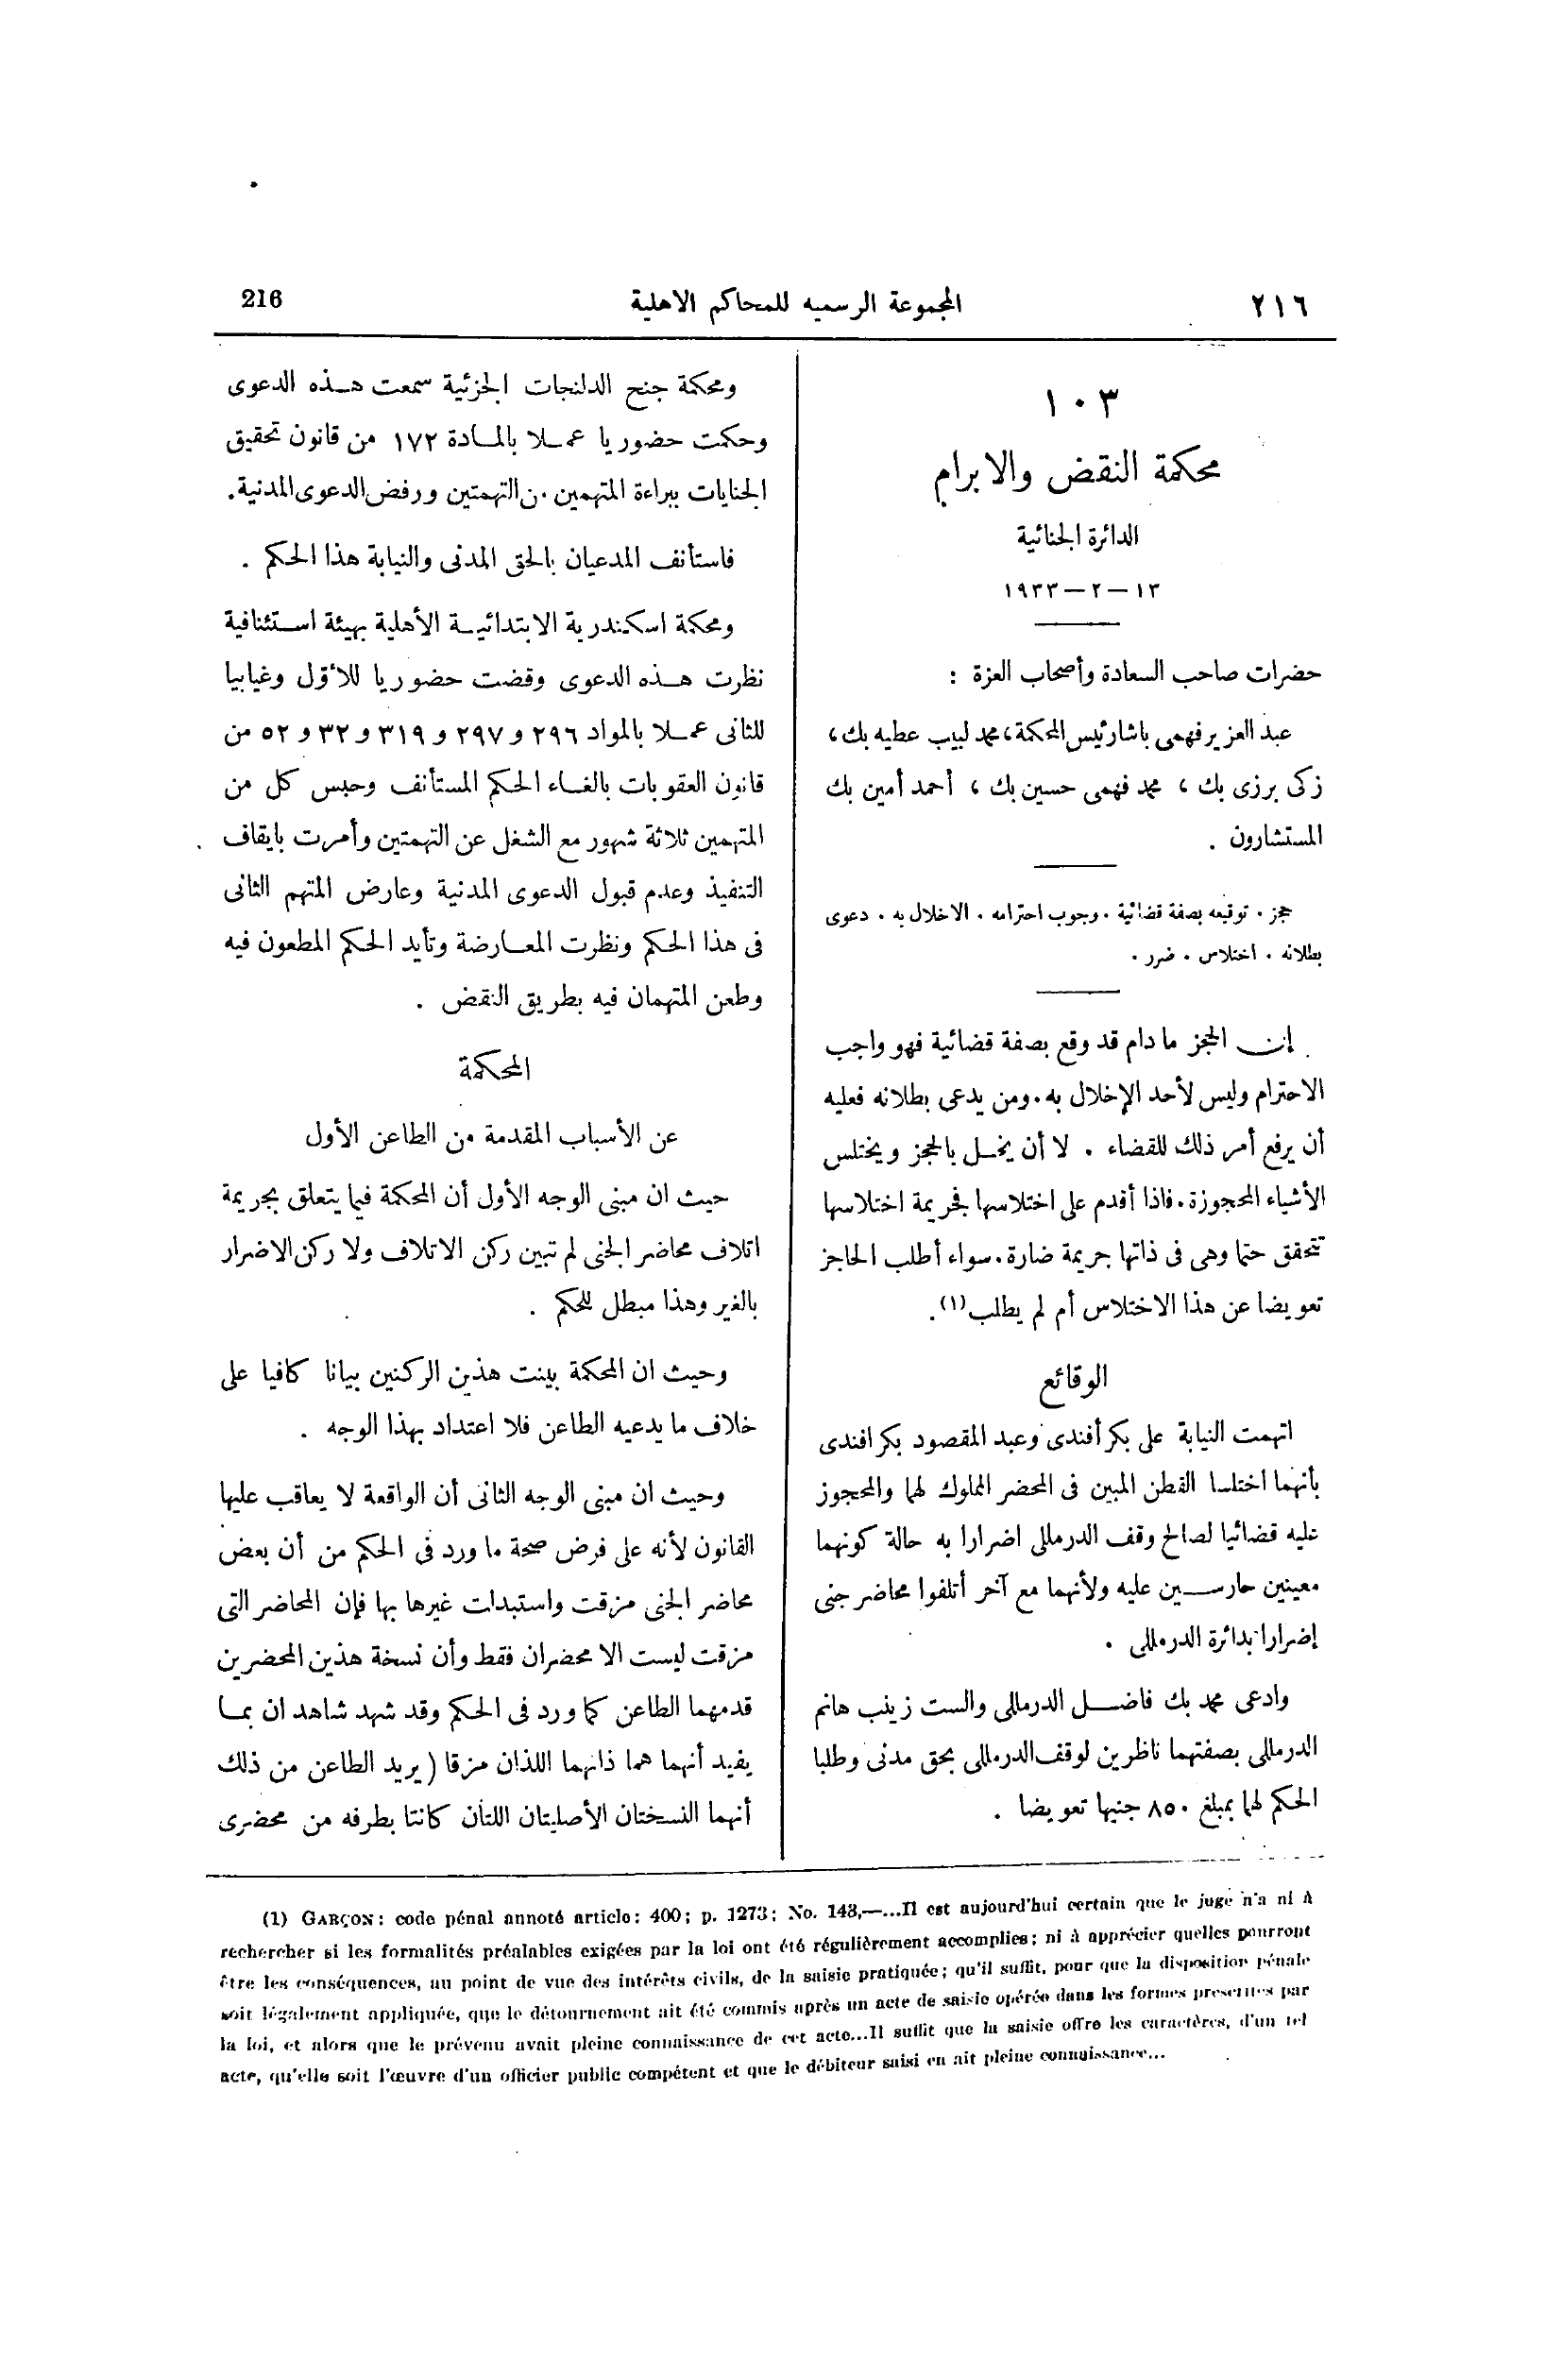 ٢١٦
المجموعة الرسميه للمحاكم الاهلية
216
١٠٣
محكمة النقض والابرام
الدائرة الجنائية
١٣ — ٢ — ١٩٣٣
حضرات صاحب السعادة وأصحاب العزة :
عبد العزيز فهمى باشا رئيس المحكمة، محمد لبيب عطيه بك،
زكى برزى بك ، محمد فهمى حسين بك ، أحمد أمين بك
المستشارون .
حجز . توقيعه بصفة قضائية . وجوب احترامه . الاخلال به . دعوى
بطلانه . اختلاس . ضرر .
إن الحجز ما دام قد وقع بصفة قضائية فهو واجب
الاحترام وليس لأحد الإخلال به. ومن يدعى بطلانه فعليه
أن يرفع أمر ذلك للقضاء . لا أن يخل بالحجز ويختلس
الأشياء المحجوزة. فاذا أقدم على اختلاسها فجريمة اختلاسها
تتحقق حتما وهى فى ذاتها جريمة ضارة. سواء أطلب الحاجز
تعويضا عن هذا الاختلاس أم لم يطلب(١).
الوقائع
اتهمت النيابة على بكر أفندى وعبد المقصود بكر افندى
بأنهما اختلسا القطن المبين فى المحضر المملوك لهما والمحجوز
عليه قضائيا لصالح وقف الدرمللى اضرارا به حالة كونهما
معينين حارسين عليه ولأنهما مع آخر أتلفوا محاضر جنى
إضرارا بدائرة الدرمللى .
وادعى محمد بك فاضل الدرمللى والست زينب هانم
الدرمللى بصفتهما ناظرين لوقف الدرمللى بحق مدنى وطلبا
الحكم لهما بمبلغ ٨٥٠ جنيها تعويضا .
ومحكمة جنح الدلنجات الجزئية سمعت هذه الدعوى
وحكمت حضوريا عملا بالمادة ١٧٢ من قانون تحقيق
الجنايات ببراءة المتهمين من التهمتين ورفض الدعوى المدنية.
فاستأنف المدعيان بالحق المدنى والنيابة هذا الحكم .
ومحكمة اسكندرية الابتدائية الأهلية بهيئة استئنافية
نظرت هذه الدعوى وقضت حضوريا للأول وغيابيا
للثانى عملا بالمواد ٢٩٦ و ٢٩٧ و ٣١٩ و ٣٢ و ٥٢ من
قانون العقوبات بالغاء الحكم المستأنف وحبس كل من
المتهمين ثلاثة شهور مع الشغل عن التهمتين وأمرت بايقاف
التنفيذ وعدم قبول الدعوى المدنية وعارض المتهم الثانى
فى هذا الحكم ونظرت المعارضة وتأيد الحكم المطعون فيه
وطعن المتهمان فيه بطريق النقض .
المحكمة
عن الأسباب المقدمة من الطاعن الأول
حيث ان مبنى الوجه الأول أن المحكمة فيما يتعلق بجريمة
اتلاف محاضر الجنى لم تبين ركن الاتلاف ولا ركن الاضرار
بالغير وهذا مبطل للحكم .
وحيث ان المحكمة بينت هذين الركنين بيانا كافيا على
خلاف ما يدعيه الطاعن فلا اعتداد بهذا الوجه .
وحيث ان مبنى الوجه الثانى أن الواقعة لا يعاقب عليها
القانون لأنه على فرض صحة ما ورد فى الحكم من أن بعض
محاضر الجنى مزقت واستبدلت غيرها بها فإن المحاضر التى
مزقت ليست الا محضران فقط وأن نسخة هذين المحضرين
قدمهما الطاعن كما ورد فى الحكم وقد شهد شاهدان بما
يفيد أنهما هما ذاتهما اللذان مزقا ( يريد الطاعن من ذلك
أنهما النسختان الأصليتان اللتان كانتا بطرفه من محضرى
(1) GARÇON: code pénal annoté article: 400; p. 1273; No. 143,—...Il est aujourd'hui certain que le juge n'a ni à
rechercher si les formalités préalables exigées par la loi ont été régulièrement accomplies; ni à apprécier quelles pourront
être les conséquences, au point de vue des intérêts civils, de la saisie pratiquée; qu'il suffit, pour que la disposition pénale
soit légalement appliquée, que le détournement ait été commis après un acte de saisie opérée dans les formes prescrites par
la loi, et alors que le prévenu avait pleine connaissance de cet acte...Il suffit que la saisie offre les caractères, d'un tel
acte, qu'elle soit l'œuvre d'un officier public compétent et que le débiteur saisi en ait pleine connaissance...